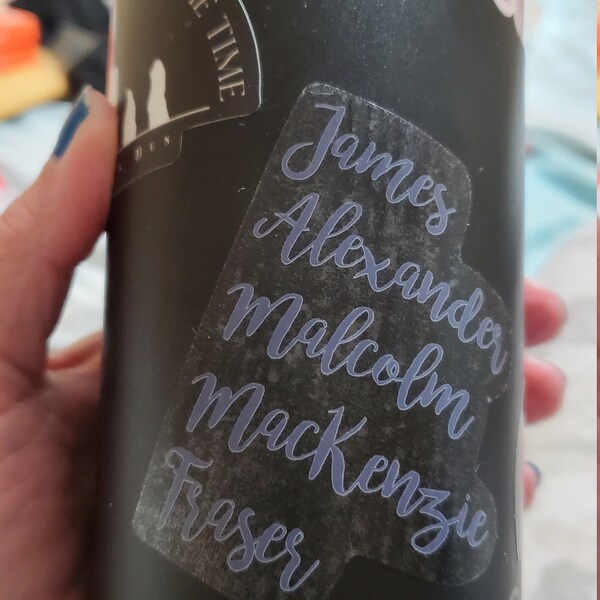 TIME
James
Alexander
Malcolm
MacKenzie
Fraser